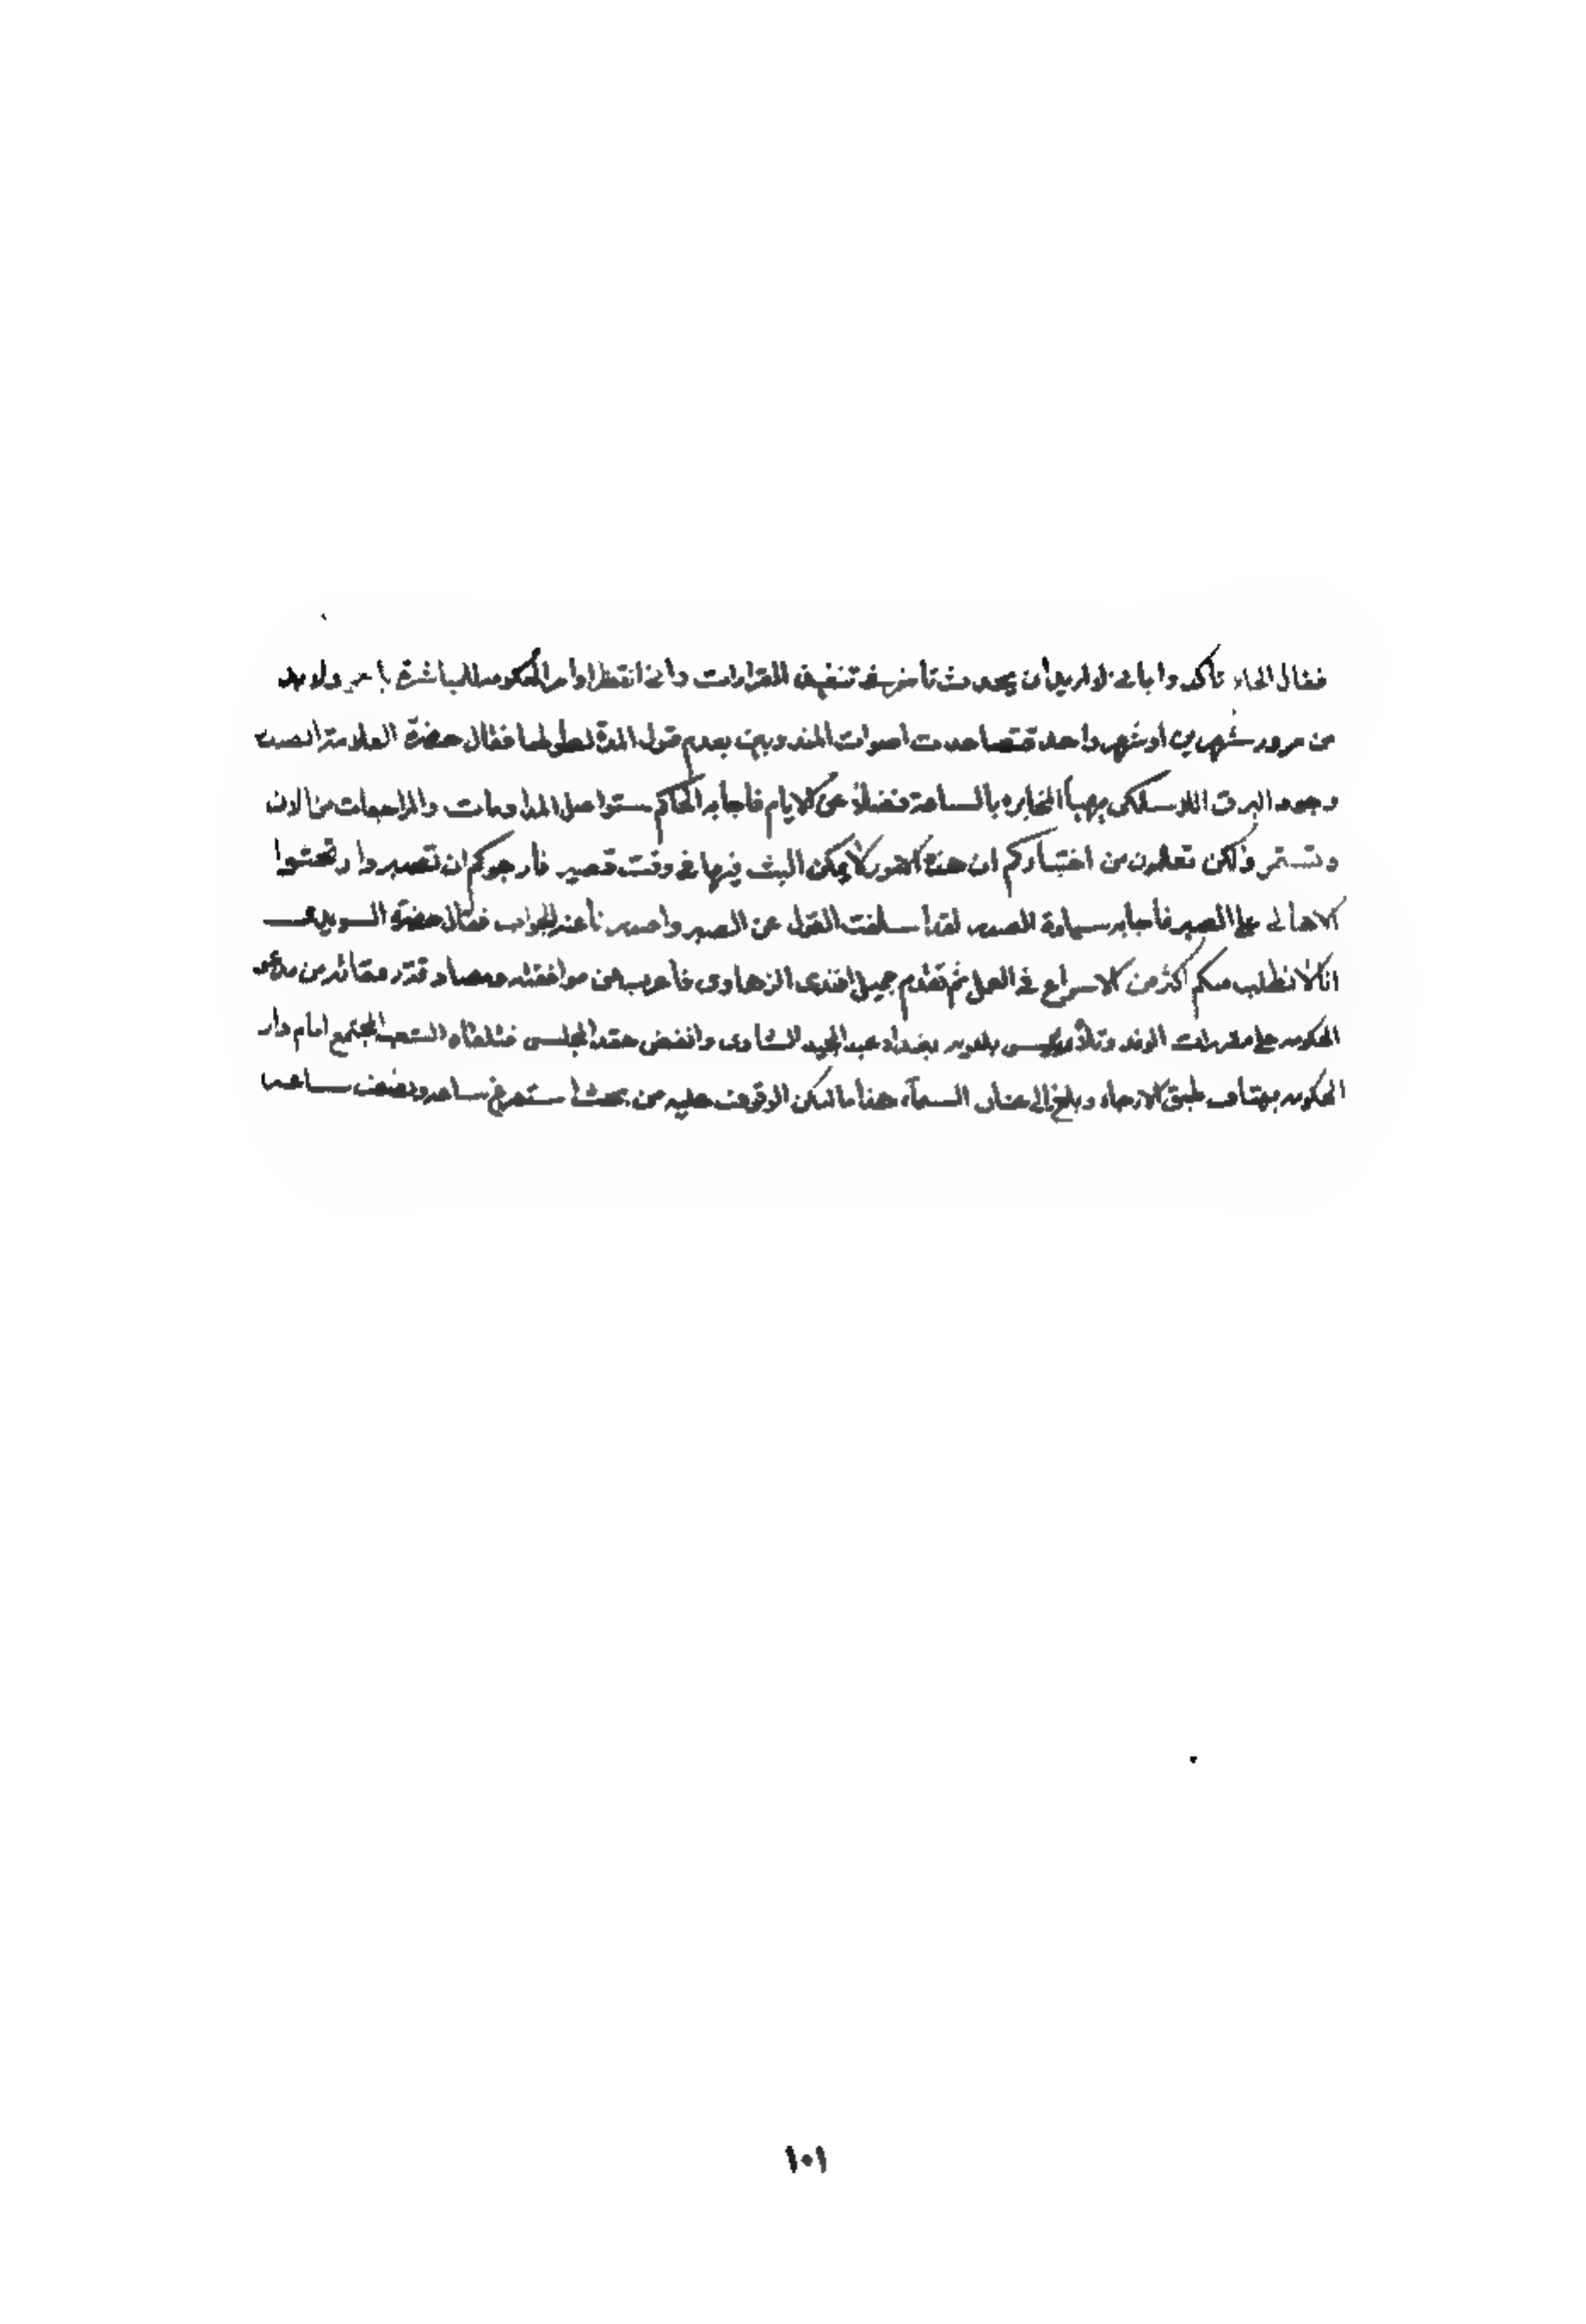 فقال الحاكم تأكدوا باني لا اريد أن يحدث تأخير في تنفيذ القرارات واني انتظر اوامر الحكومة للمباشرة ولا بد
من مرور شهرين او شهر واحد فتصاعدت اصوات المندوبين بعدم قبول المدة لطولها فقال حضرة العلامة الصدر
وجود البرق اللاسلكي يهيأ المخابرة بالساعة فضلاً عن الايام فأجابه الحاكم ستواصل المداومات والمراجعات من الان
وتستمر ولكن تعلمون من اختباركم ان هذه الامور لا يمكن البث فيها في وقت قصير فأرجوكم ان تصبروا وتحثوا
الاهالي على الصبر فأجابه سيادة الصدر لقد اسلفت القول عن الصبر واصدرنا عنه الجواب فقال حضرة السويدي
اننا لا نطلب منكم اكثر من الاسراع في العمل ثم تقدم جميل افندي الزهاوي فأعرب عن موافقته ومصادقته رفقائه من
الحكومة على مقررات الوفد وتلاه رئيس بلدية بغداد عبد المجيد الشاوي وانفض عقد المجلس فتلقاه الشعب المجتمع امام دار
الحكومة بهتاف طبق الارجاء وبلغ الى عنان السمآء هذا ما امكن الوقوف عليه من بحث استغرق ساعة ونصف ساعة
١٠١